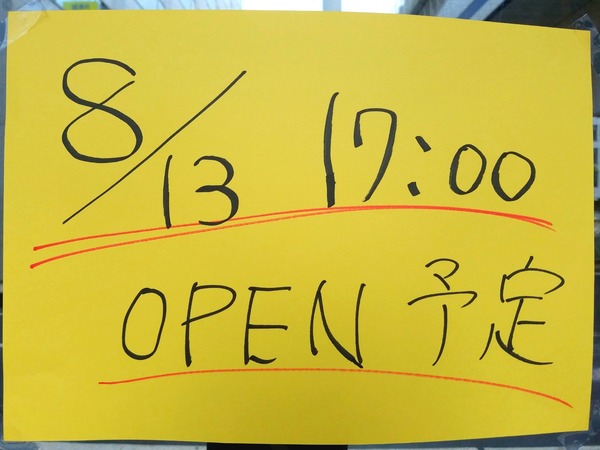 8/13 17:00
OPEN 予定